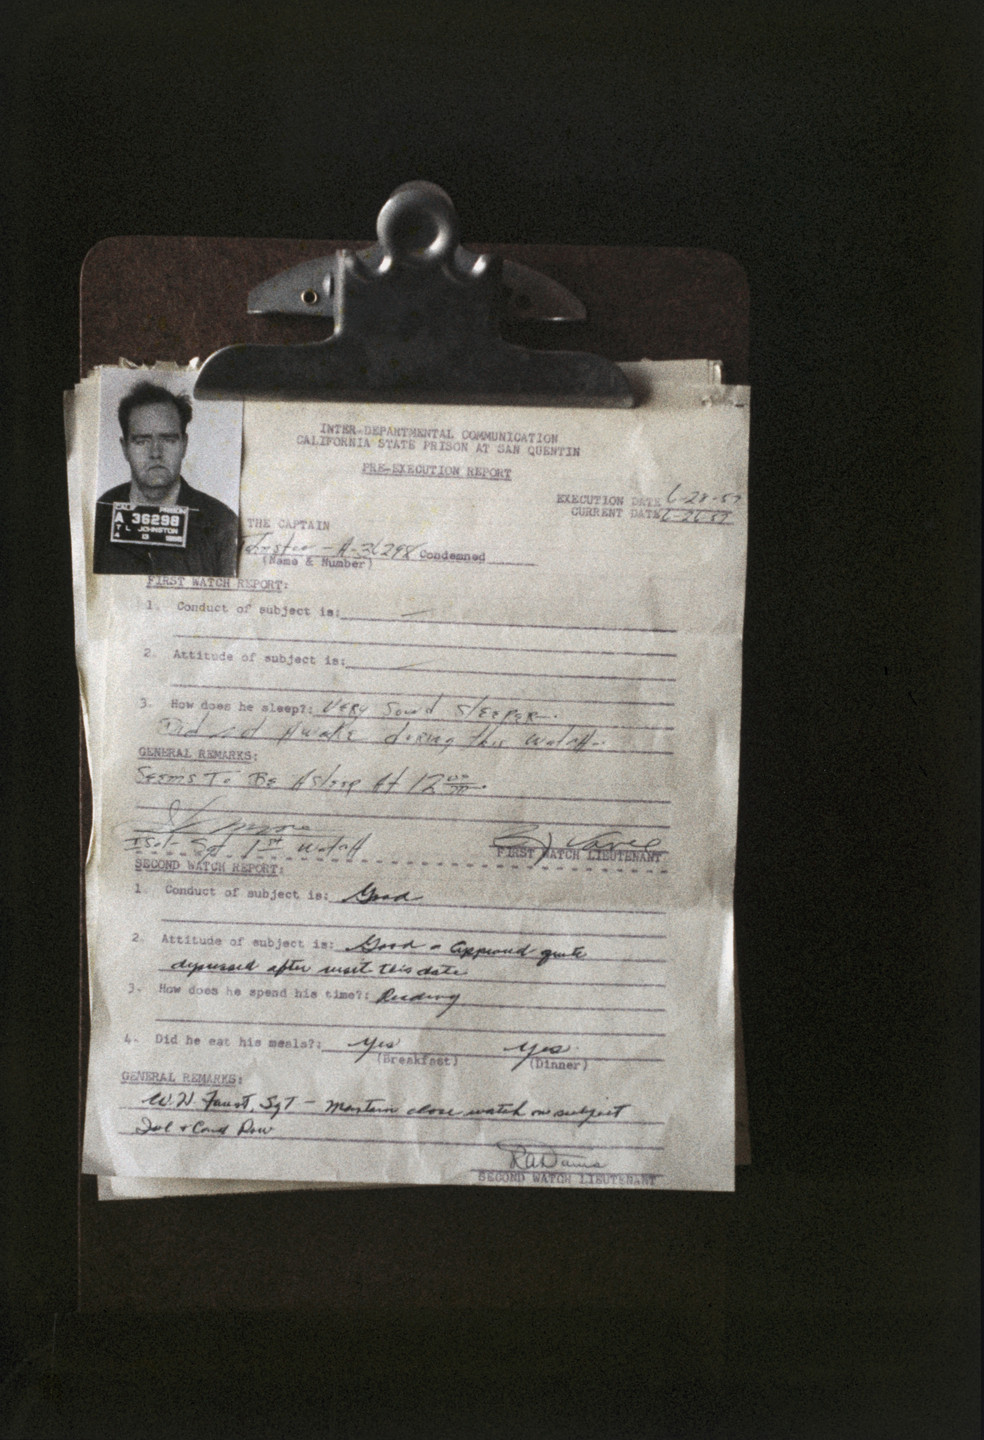 INTER-DEPARTMENTAL COMMUNICATION
CALIFORNIA STATE PRISON AT SAN QUENTIN
PRE-EXECUTION REPORT
EXECUTION DATE 6-28-57
CURRENT DATE
CALIF PRISON
A 36298
T L JOHNSTON
THE CAPTAIN
Johnston - A-36298 Condemned
(Name & Number)
FIRST WATCH REPORT:
1. Conduct of subject is:
2. Attitude of subject is:
3. How does he sleep?: Very Sound Sleeper.
Did not Awake during this watch.
GENERAL REMARKS:
Seems To Be Asleep At 12
Sgt 1st Watch
FIRST WATCH LIEUTENANT
SECOND WATCH REPORT:
1. Conduct of subject is: Good
2. Attitude of subject is: Good - Appeared quite
depressed after visit this date
3. How does he spend his time?: Reading
4. Did he eat his meals?: Yes Yes
(Breakfast) (Dinner)
GENERAL REMARKS:
W.N. Faust, Sgt - close watch on subject
Row
SECOND WATCH LIEUTENANT